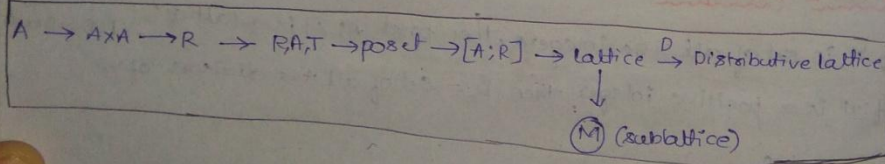 A → A×A → R → R,A,T → poset → [A;R] → lattice D→ Distributive lattice
↓
M (sublattice)